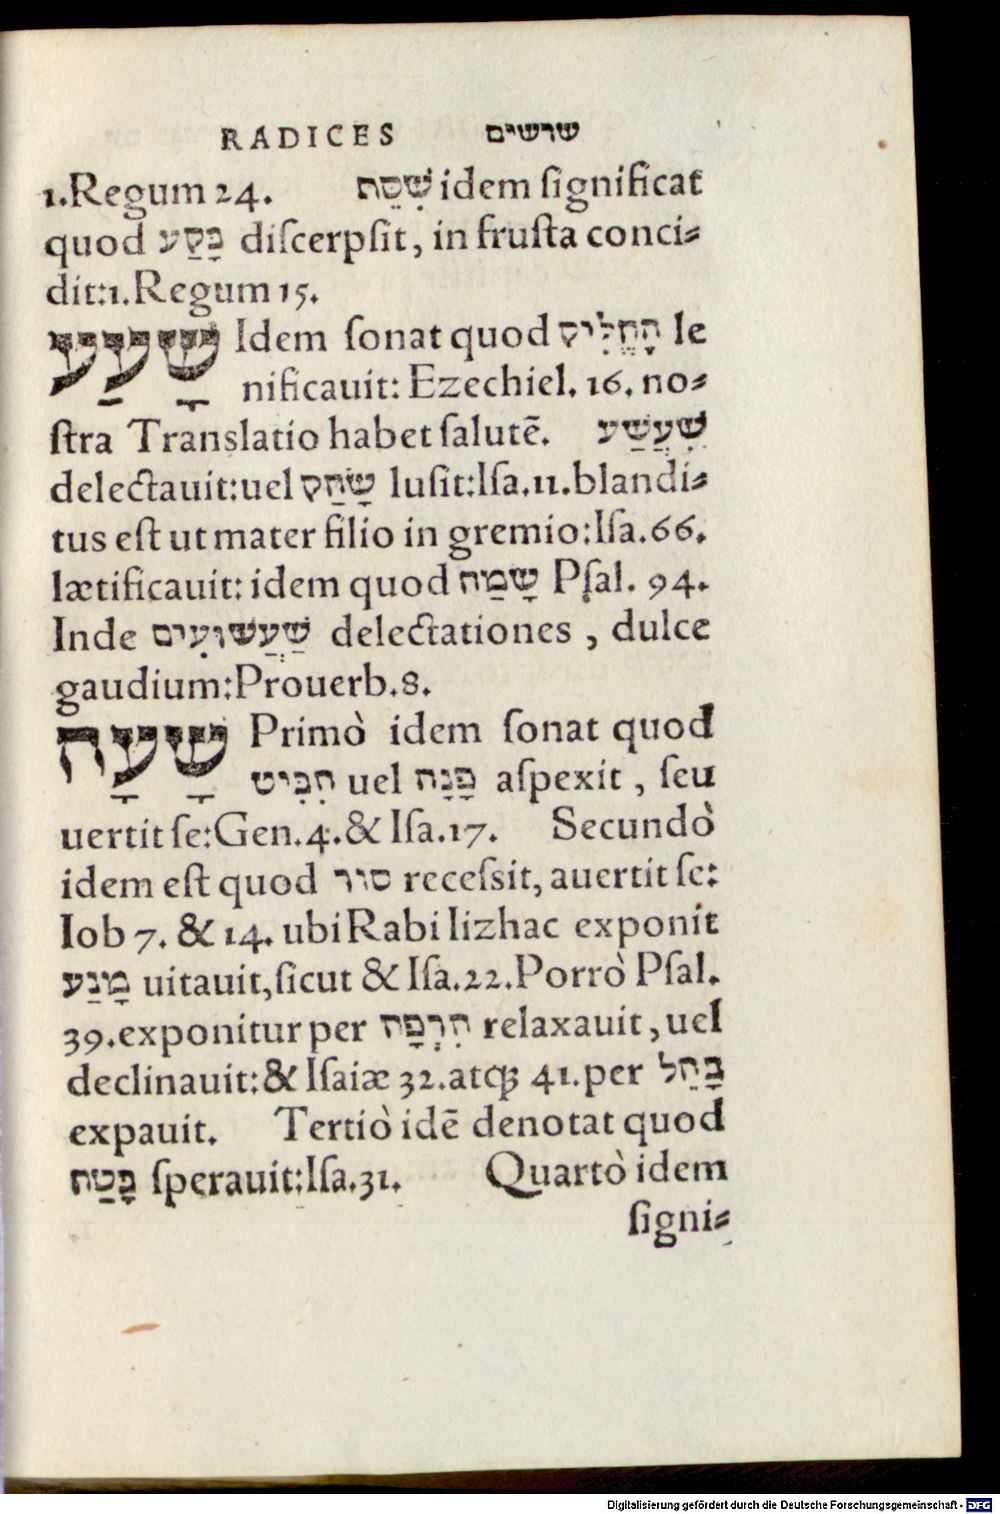 RADICES שרשים
1.Regum 24. שִׁסֵּת idem ſignificat
quod בָּקַע diſcerpſit, in fruſta conci⸗
dit:1.Regum 15.
שָׁעַע Idem ſonat quod הָחֱלִיק le
nificauit: Ezechiel. 16. no⸗
ſtra Translatio habet ſalutē. שִׁעֲשַׁע
delectauit:uel שָׂחַק luſit:Iſa.11.blandi⸗
tus eſt ut mater filio in gremio:Iſa.66.
lætificauit: idem quod שָׂמַח Pſal. 94.
Inde שַׁעֲשׁוּעִים delectationes , dulce
gaudium:Prouerb.8.
שָׁעָה Primò idem ſonat quod
הִבִּיט uel פָּנָה aſpexit , ſeu
uertit ſe:Gen.4.& Iſa.17. Secundò
idem eſt quod סור receſsit, auertit ſe:
Iob 7. & 14. ubi Rabi Iizhac exponit
מָנַע uitauit,ſicut & Iſa.22.Porrò Pſal.
39.exponitur per הִרְפָּה relaxauit,uel
declinauit:& Iſaiæ 32.atq; 41.per בָּהַל
expauit. Tertiò idē denotat quod
בָּטַח ſperauit:Iſa.31. Quartò idem
ſigni⸗
Digitalisierung gefördert durch die Deutsche Forschungsgemeinschaft - DFG